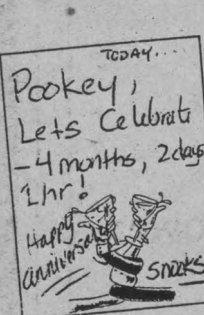 TODAY....
Pookey,
Lets Celebrate
-4 months, 2 days
1 hr!
Happy
anniversary
Snooks